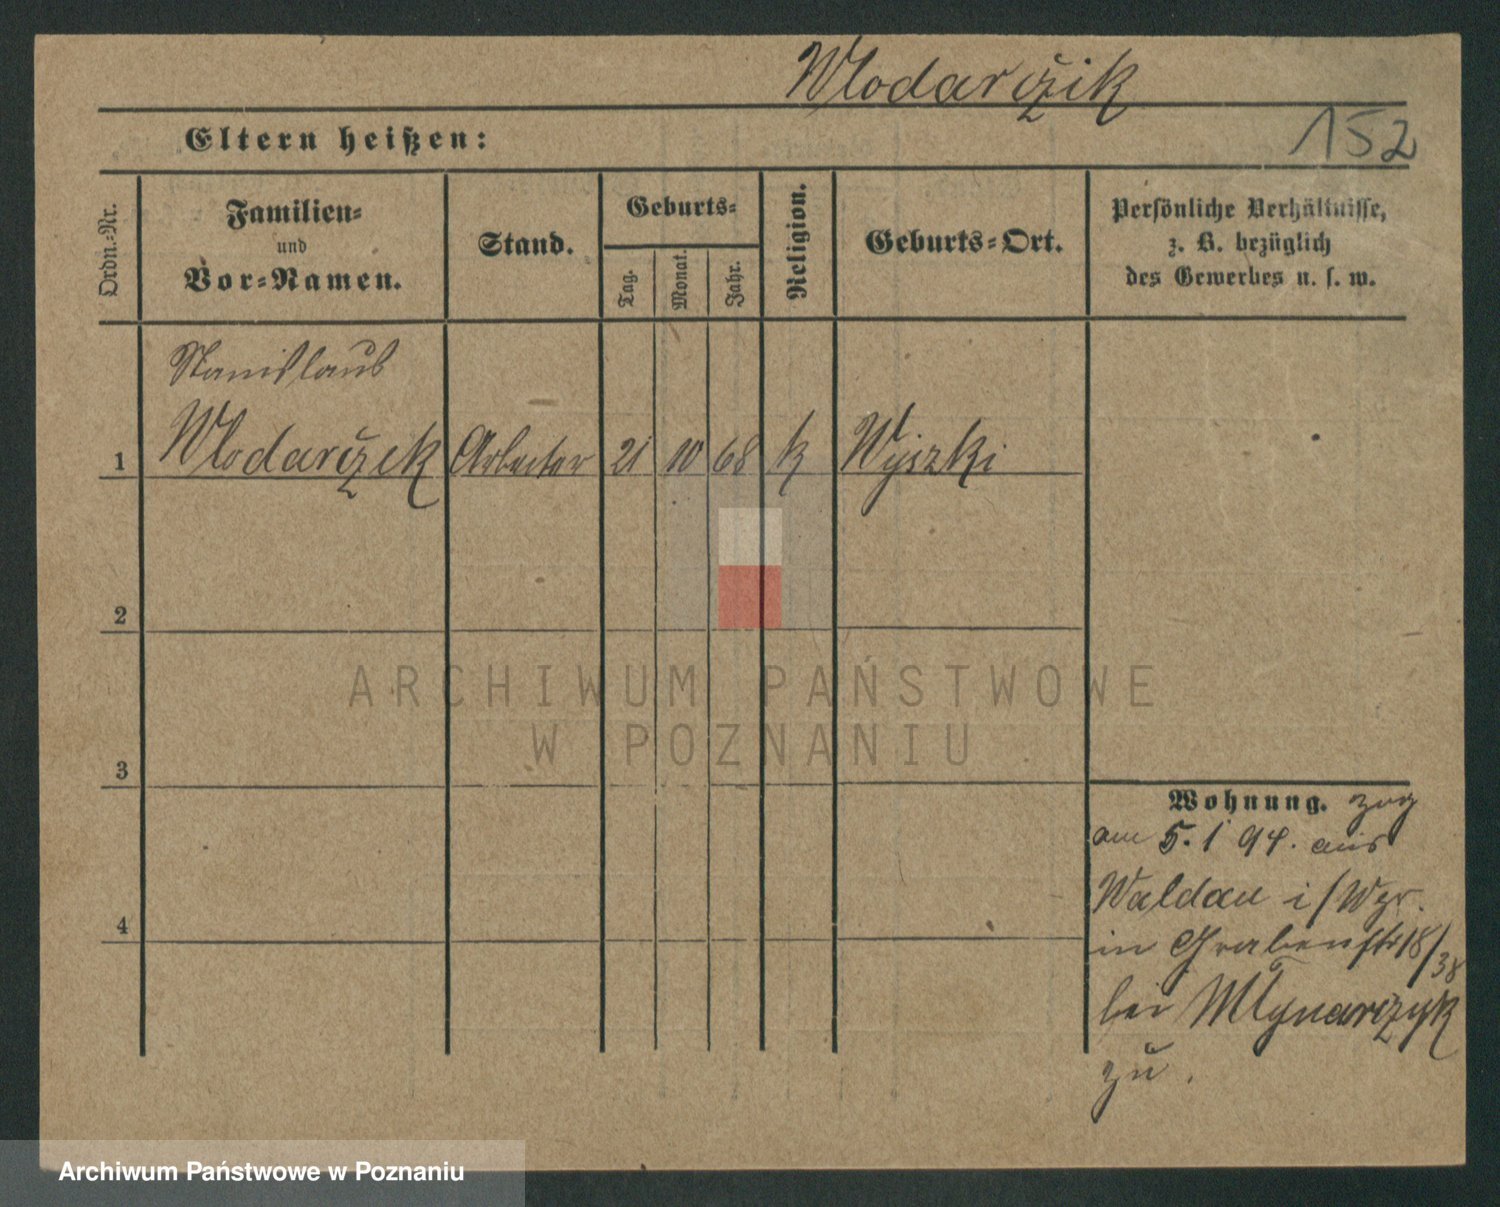 Wlodarčzik
152
Eltern heißen:
Ordn.=Nr.
Familien=
und
Vor=Namen.
Stand.
Geburts=
Tag.
Monat.
Jahr.
Religion.
Geburts=Ort.
Persönliche Verhältnisse,
z. B. bezüglich
des Gewerbes u. s. w.
Stanislaus
1 Wlodarčzek Arbeiter 21 10 68 k Wyszki
2
3
4
Wohnung. zog
am 5. 1 94. aus
Waldau i/Wpr.
in Grabenstr 18/38
bei Młynarczyk
zu.
ARCHIWUM PAŃSTWOWE
W POZNANIU
Archiwum Państwowe w Poznaniu